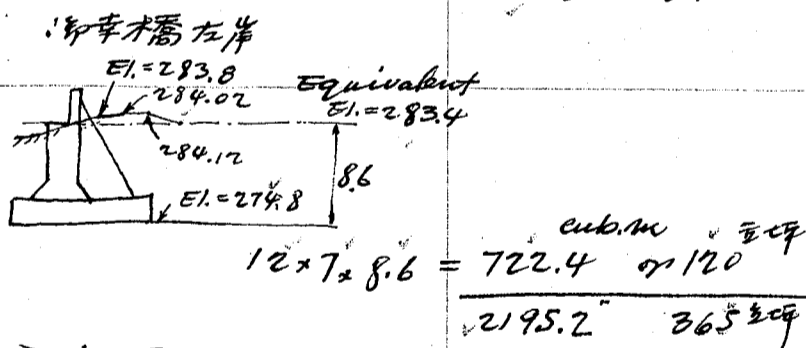 御幸橋左岸
El.=283.8
284.02
Equivalent
El.=283.4
284.12
8.6
El.=274.8
cub.m 立坪
12×7×8.6 = 722.4 or 120
2195.2" 365 立坪